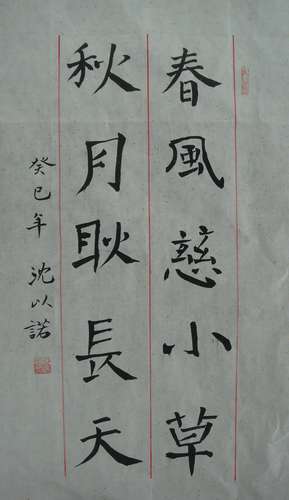 春風慈小草
秋月耿長天
癸巳年 沈以諾